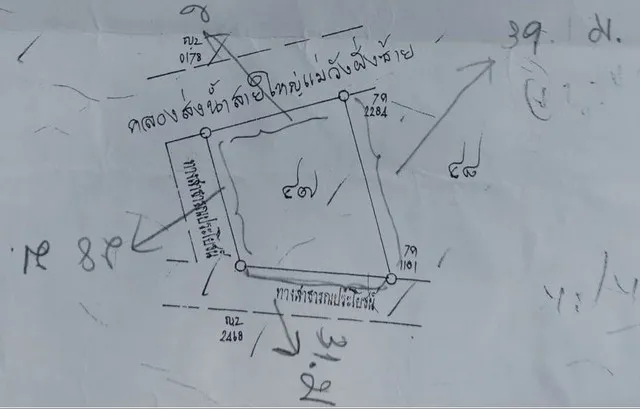 39. ม.
ญ2
0178
คลองส่งน้ำสายใหญ่แม่วังฝั่งซ้าย
79
2284
ทางสาธารณประโยชน์
๔๗
๔๘
79
1181
ทางสาธารณประโยชน์
ญ2
2468
31. ม